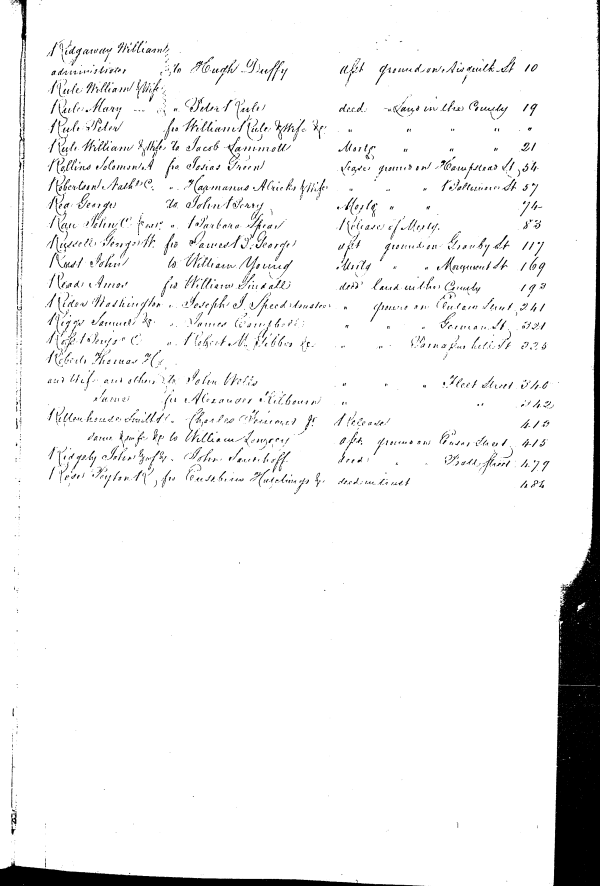 Ridgaway William
administrator to Hugh Duffy asst ground on Aisquith St 10
Rule William & Wife
Rule Mary " Peter Rule deed " Land in the County 19
Rule Peter fro William Rule & Wife &c " " " " "
Rule William & Wife to Jacob Lammott Mortg " " " 21
Rollins Solomon A fro Josias Green Lease ground on Hampstead St 54
Robertson C. " Harmanus Alricks & Wife " " " Patterson St 57
Rea George to John Perry Mortg " " 74
John C " Barbara Spear Release of Mortg. 83
Russell George W. fro James S. George asst ground on Granby St 117
Rust John to William Young Mortg " " Monument St 169
Read Amos fro William Lindall deed land in the County 192
Rider Washington " Joseph J. Speed trustee " ground on Street 241
Riggs Samuel &c " James Campbell " " " German St 321
Ross " Robert M. Gibbes &c " " Tamany hill St 323
Roberts Thomas H
and Wife and others to John Wells " " " Fleet Street 340
Same fro Alexander Kilbourn " " 342
Rittenhouse " Charles Jr Release 413
same & wife &c to William asst ground on Ensor Street 415
Ridgely John & wf &c " John deed " Pratt Street 479
fro Eusebius Hutchings &c deed in trust 484